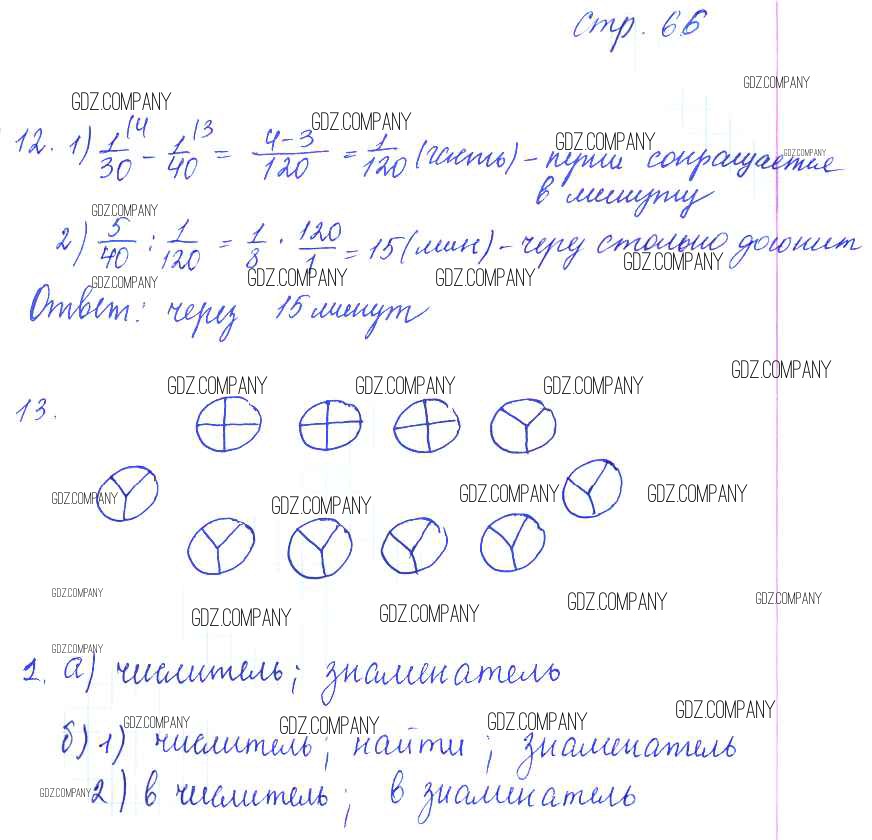 стр. 66
GDZ.COMPANY
GDZ.COMPANY
GDZ.COMPANY
GDZ.COMPANY
GDZ.COMPANY
12. 1) 1/30 (4 - 1/40 (3 = 4-3/120 = 1/120 (часть) - сокращается
в минуту
GDZ.COMPANY
2) 5/40 : 1/120 = 1/8 · 120/1 = 15 (мин) - через столько догонит
GDZ.COMPANY
GDZ.COMPANY
GDZ.COMPANY
GDZ.COMPANY
Ответ: через 15 минут
GDZ.COMPANY
GDZ.COMPANY
GDZ.COMPANY
GDZ.COMPANY
13.
GDZ.COMPANY
GDZ.COMPANY
GDZ.COMPANY
GDZ.COMPANY
GDZ.COMPANY
GDZ.COMPANY
GDZ.COMPANY
GDZ.COMPANY
GDZ.COMPANY
GDZ.COMPANY
1. а) числитель; знаменатель
GDZ.COMPANY
GDZ.COMPANY
GDZ.COMPANY
GDZ.COMPANY
б) 1) числитель; найти; знаменатель
GDZ.COMPANY
2) в числитель; в знаменатель